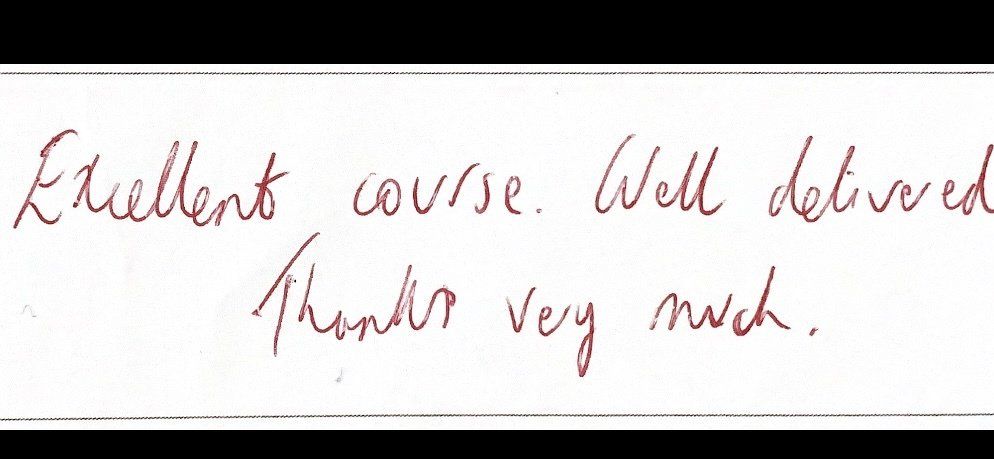 Excellent course. Well delivered
Thanks very much.